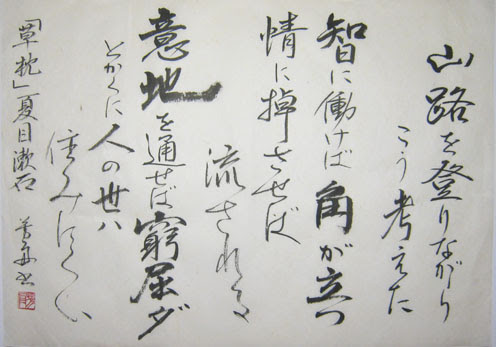 山路を登りながら
こう考えた
智に働けば角が立つ
情に掉させば
流される
意地を通せば窮屈ダ
とかくに人の世ハ
住みにくい
「草枕」夏目漱石